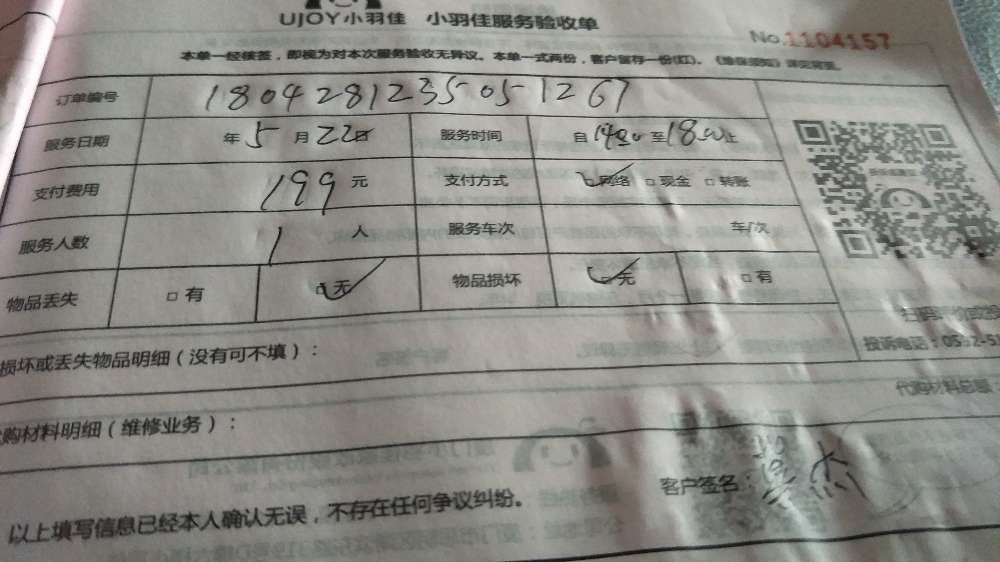 UJOY小羽佳 小羽佳服务验收单
No.1104157
本单一经核签，即视为对本次服务验收无异议。本单一式两份，客户留存一份(红)。《维保须知》详见背面。
订单编号 180428123505051267
服务日期 年5月22日 服务时间 自14:00至18:00止
支付费用 199元 支付方式 □网络 □现金 □转账
服务人数 1人 服务车次 车/次
物品丢失 □有 □无 物品损坏 □无 □有
损坏或丢失物品明细（没有可不填）：
投诉电话：05
代购材料总额
购材料明细（维修业务）：
客户签名：
以上填写信息已经本人确认无误，不存在任何争议纠纷。